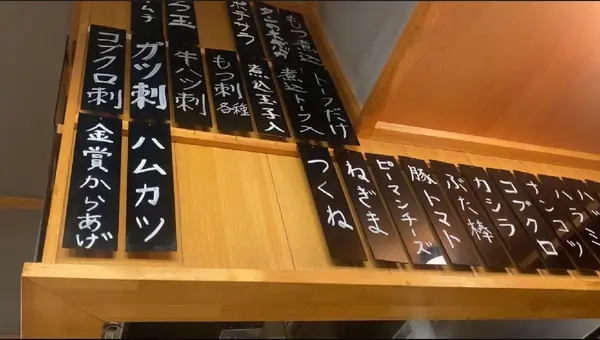 コブクロ刺
ガツ刺
牛ハツ刺
もつ刺各種
煮込玉子入
煮込トーフ入
トーフだけ
もつ煮込
ポテサラ
金賞からあげ
ハムカツ
つくね
ねぎま
ピーマンチーズ
豚トマト
ぶた棒
カシラ
コブクロ
ナンコツ
ハラミ